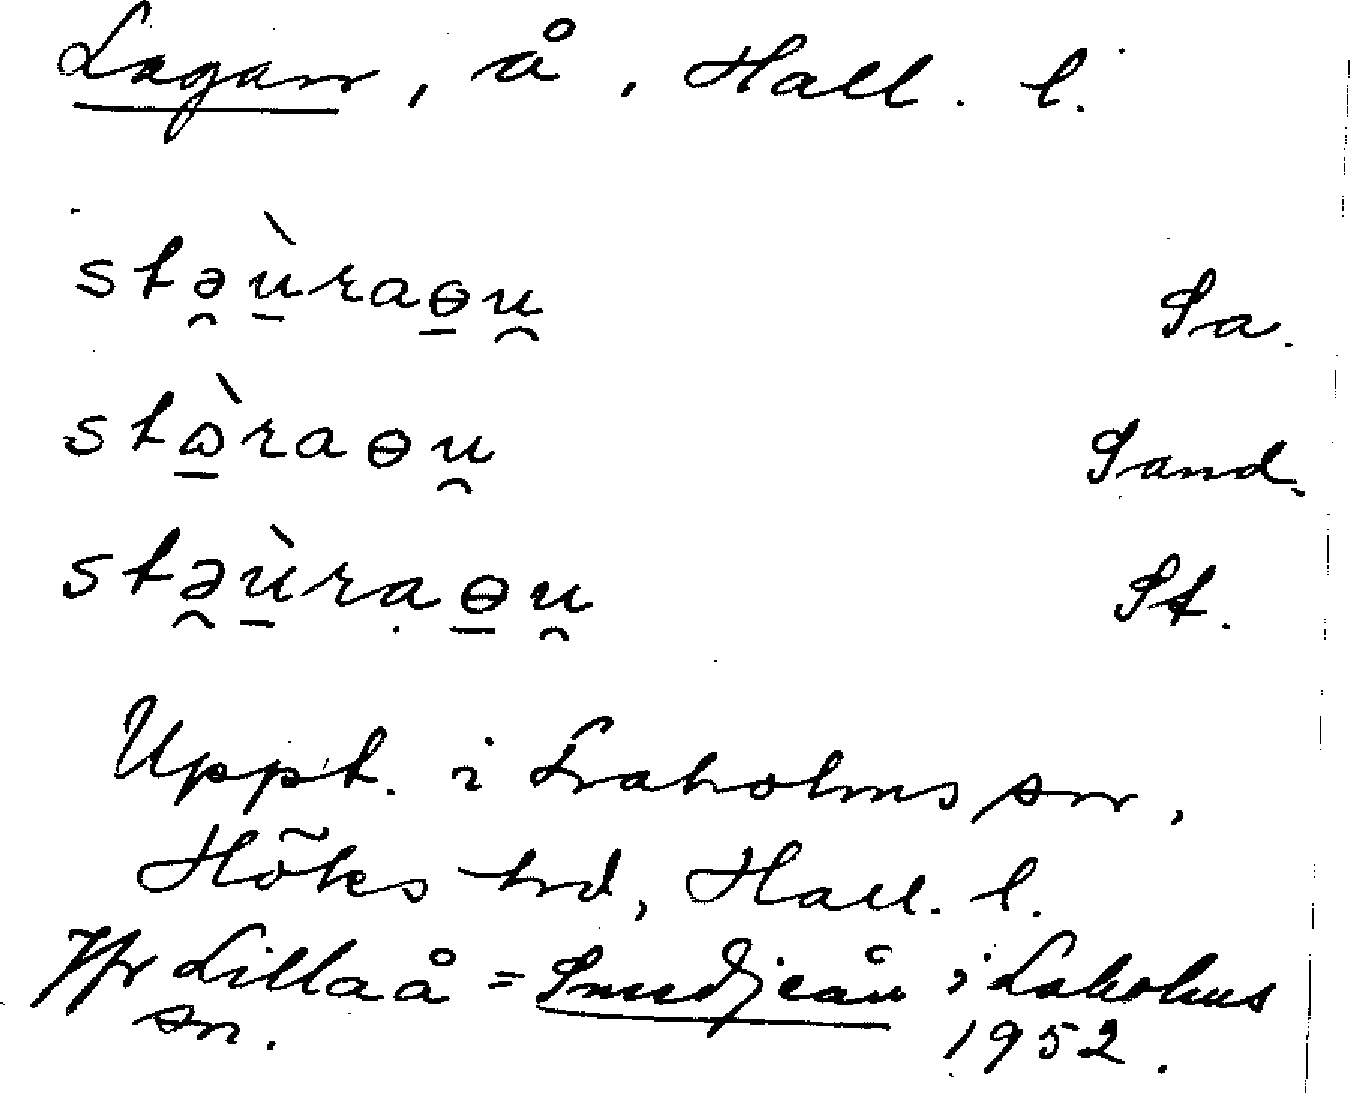 Lagan, å, Hall. l.
stə̯ùraɵu̯ Sa.
stàraɵu̯ Sand.
stə̯ùrạɵu̯ St.
Uppt. i Laholms sn,
Höks hd, Hall. l.
Jfr Lillaå = Smedjeån i Laholms
sn. 1952.